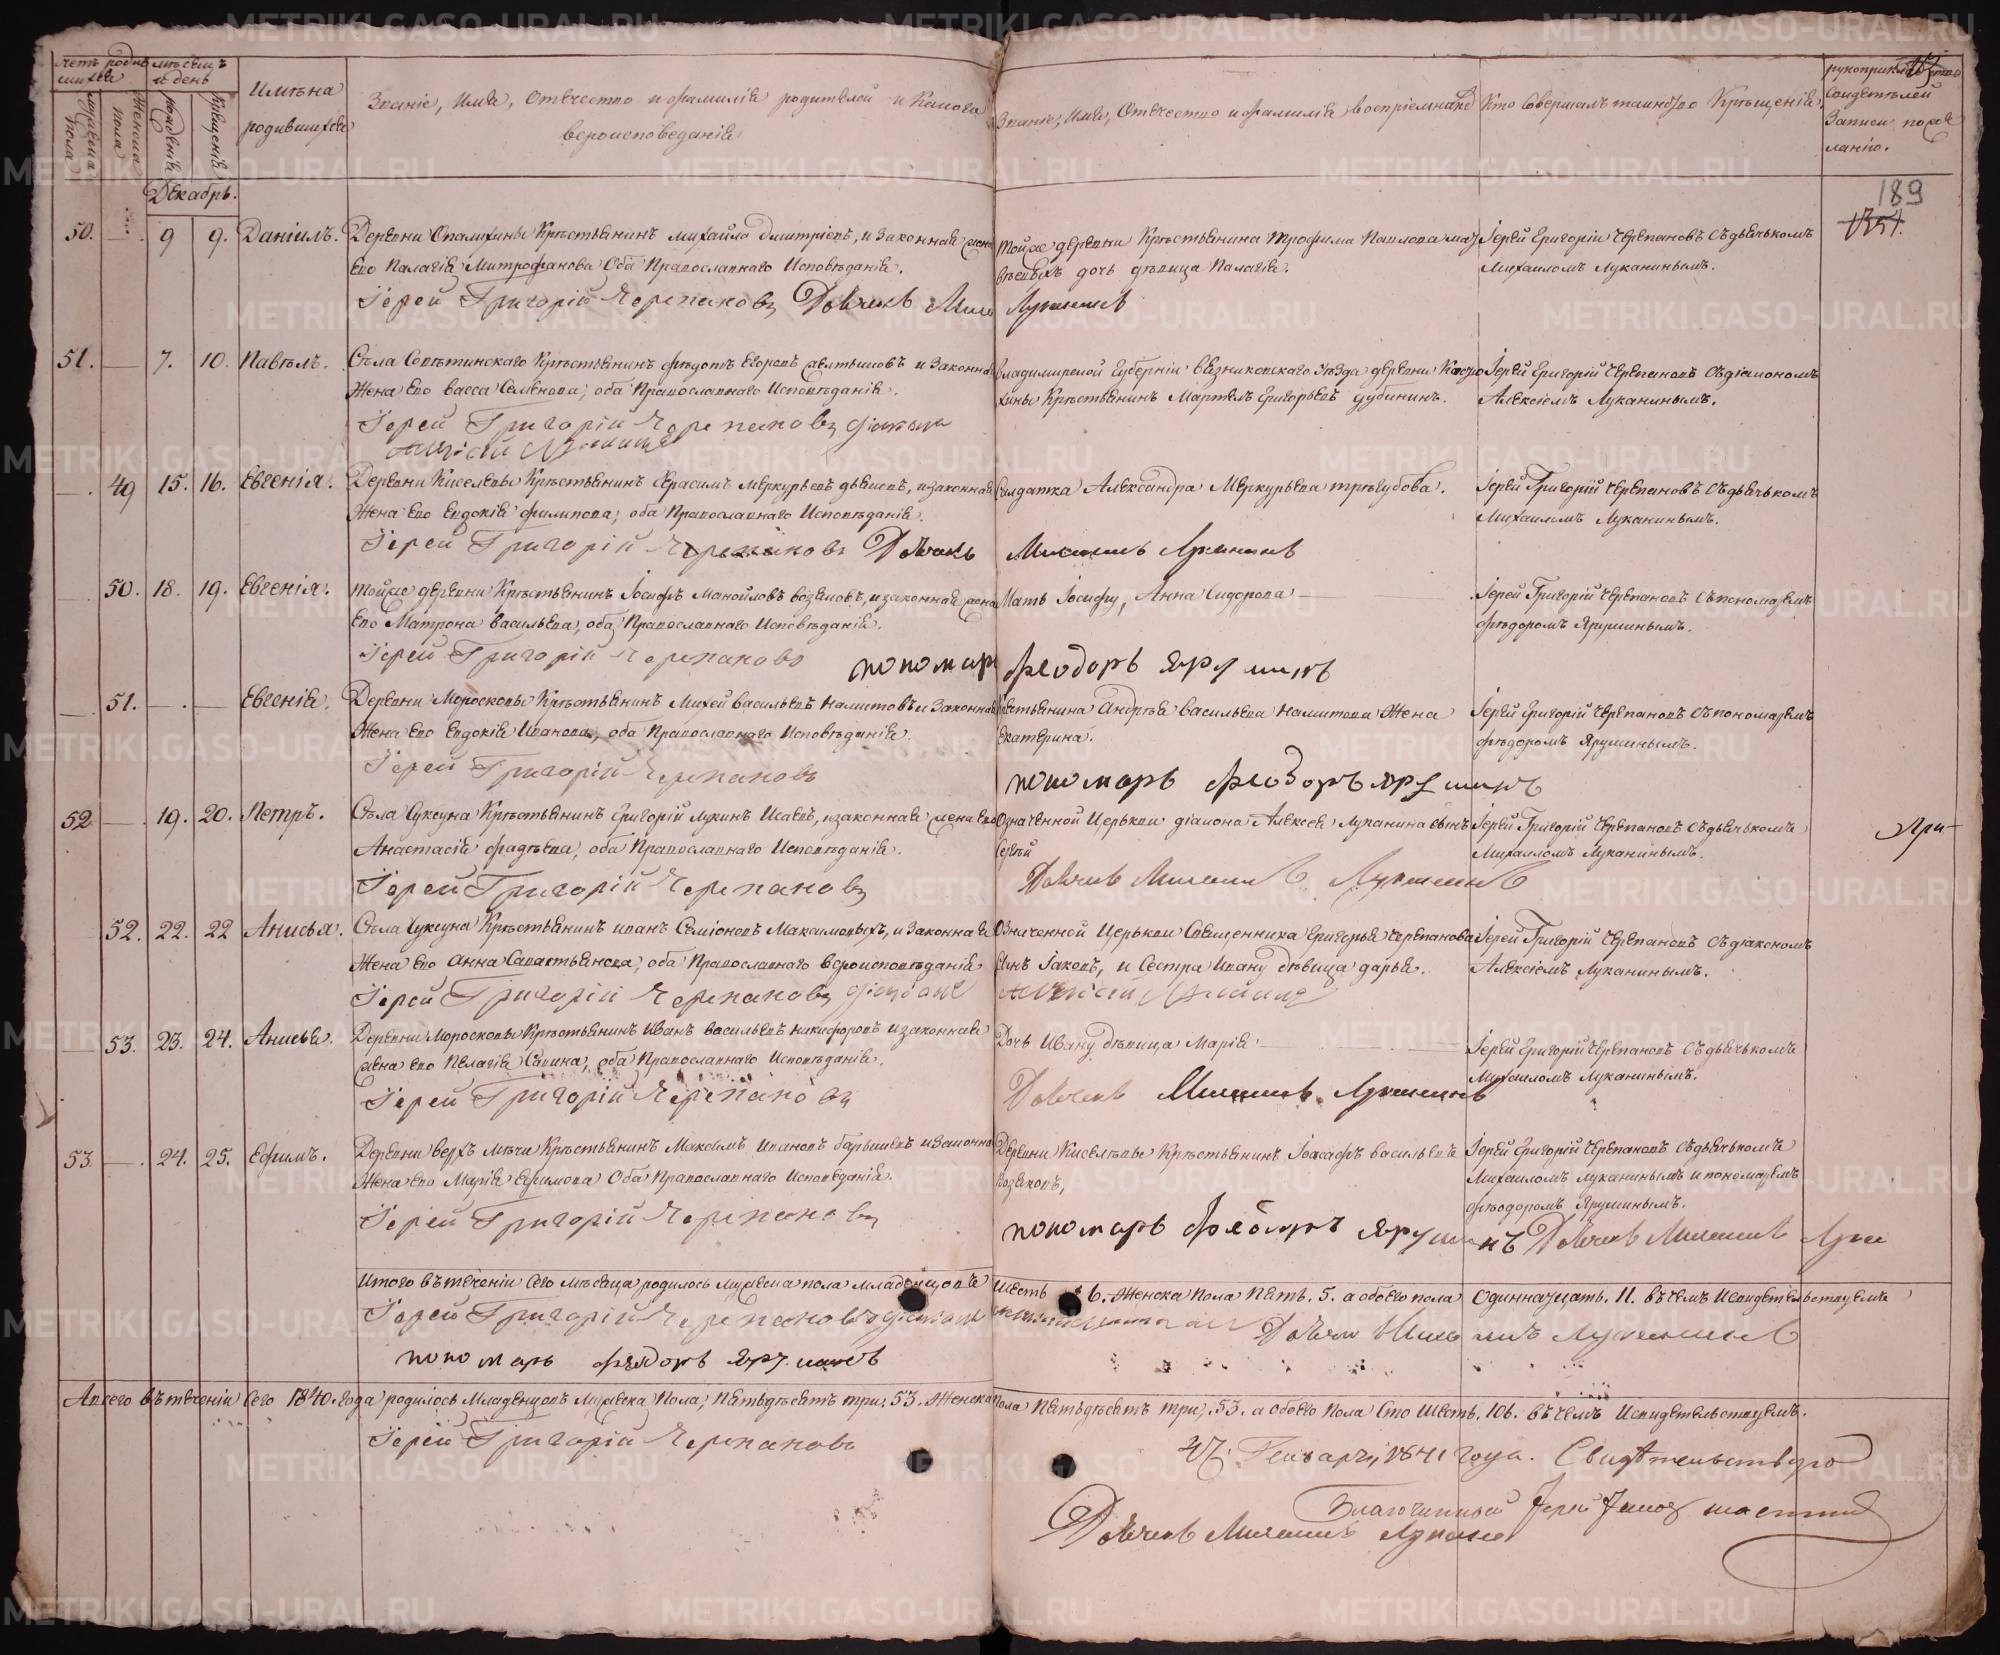 Щетъ родив
шихся
мѣсецъ
и день
Имѣна
родившихся
Званіе, Имя, Отвечество и фамилія родителей и Какова
вероисповеданія
Званіе, Имя, Отвечество и фамилія Воспріемниковъ
Кто Совершалъ таинство Крѣщенія,
рукоприкладство
Свидетѣлей
Записи по же
ланію.
мужеска
пола
Женска
пола
рожденія
Крещенія
Декабрь.
189
50.
9
9.
Даніилъ.
Деревни Опалихины Крѣстьянинъ Михайло Дмитріевъ, и Законная жена
Его Палагія Митрофанова Оба Православнаго Исповѣданія.
Іерей Григорій Черепановъ Дьячекъ Миха
Тойже деревни Крѣстьянина Трофима Павлова
дочь дѣвица Палагія.
Луканинъ
Іерей Григорій Черепановъ Съдьячькомъ
Михаиломъ Луканинымъ.
51.
7.
10.
Павѣлъ.
Села Совѣтинскаго Крѣстьянинъ Фѣдотъ Егоровъ и Законная
Жена Его Васса Семенова, оба Православнаго Исповѣданія.
Іерей Григорій Черепановъ діаконъ
Алексій Луканинъ
Владимирской Губерніи Вязниковскаго уѣзда деревни
Крѣстьянинъ Григорьевъ Дубининъ.
Іерей Григорій Черепановъ Съдіакономъ
Алексіемъ Луканинымъ.
49
15.
16.
Евгенія.
Деревни Киселевы Крѣстьянинъ Герасимъ Меркурьевъ и законная
Жена Его Евдокія Филипова, оба Православнаго Исповѣданія.
Іерей Григорій Черепановъ Дьячекъ
Солдатка Александра Меркурьева Трѣгубова.
Михаилъ Луканинъ
Іерей Григорій Черепановъ Съдьячькомъ
Михаиломъ Луканинымъ.
50.
18.
19.
Евгенія.
Тойже деревни Крѣстьянинъ Іосифъ Манойловъ Козяковъ, и законная жена
Его Матрона Васильева, оба Православнаго Исповѣданія.
Іерей Григорій Черепановъ
пономарь
Мать Іосифу, Анна Сидорова
Феодоръ Ярушинъ
Іерей Григорій Черепановъ Съпономаремъ
Фѣдоромъ Ярушинымъ.
51.
Евгенія.
Деревни Морозковы Крѣстьянинъ Михей Васильевъ и Законная
Жена Его Евдокія Иванова, оба Православнаго Исповѣданія.
Іерей Григорій Черепановъ
Крѣстьянина Андрѣя Васильева Жена
Екатерина.
пономарь Феодоръ Ярушинъ
Іерей Григорій Черепановъ Съпономаремъ
Фѣдоромъ Ярушинымъ.
52
19.
20.
Петръ.
Сѣла Суксуна Крѣстьянинъ Григорій Лукинъ Исаевъ, и законная жена Его
Анастасія Фадѣева, оба Православнаго Исповѣданія.
Іерей Григорій Черепановъ
Означенной Церькви діакона Алексея Луканина сынъ
Сергѣй
Дьячекъ Михаилъ Луканинъ
Іерей Григорій Черепановъ Съдьячькомъ
Михаиломъ Луканинымъ.
52.
22.
22
Анисья.
Сѣла Суксуна Крѣстьянинъ Иванъ Семіоновъ Максимовыхъ, и Законная
Жена Его Анна Савастьянова, оба Православнаго вероисповѣданія
Іерей Григорій Черепановъ діаконъ
Означенной Церькви Священника Григорья Черепанова
Сынъ Іаковъ, и Сестра Ивану дѣвица дарья.
Алексій Луканинъ
Іерей Григорій Черепановъ Съдіакономъ
Алексіемъ Луканинымъ.
53.
23.
24.
Анисья.
Деревни Морозковы Крѣстьянинъ Иванъ Васильевъ Никифоровъ и законная
жена Его Пелагія Савина, оба Православнаго Исповѣданія.
Іерей Григорій Черепановъ
Дочь Ивану дѣвица Марія
Дьячекъ Михаилъ Луканинъ
Іерей Григорій Черепановъ Съдьячькомъ
Михаиломъ Луканинымъ.
53
24.
25.
Ефимъ.
Деревни Верхъ Крѣстьянинъ Максимъ Ивановъ и Законная
Жена Его Марія Ефимова Оба Православнаго Исповеданія.
Іерей Григорій Черепановъ
Деревни Киселѣвы Крѣстьянинъ Іоасафъ Васильевъ
Козяковъ,
пономарь Феодоръ Ярушинъ Дьячекъ Михаилъ Лука
Іерей Григорій Черепановъ Съдьячькомъ
Михаиломъ Луканинымъ и пономаремъ
Фѣодоромъ Ярушинымъ.
Итого Въ тѣченіи Сего Мѣсеца родилось Мужеска пола младенцовъ Шесть 6. Женска Пола Пять. 5. а обоего пола Одинназцать. 11. Въчемъ Исвидетельствуемъ
Іерей Григорій Черепановъ діаконъ Дьячекъ Михаилъ Луканинъ
пономарь Фѣодоръ Ярушинъ
А всего Въ тѣченіи Сего 1840. года родилось Младенцовъ Мужеска Пола, Пятьдѣсятъ три, 53. Женска Пола Пятьдѣсятъ три, 53. а Обоего Пола Сто Шесть. 106. Въчемъ Исвидетельствуемъ.
Іерей Григорій Черепановъ
Генваря, 1841 года. Свидѣтельствую
Благочинный Іерей
Дьячекъ Михаилъ Луканинъ
METRIKI.GASO-URAL.RU